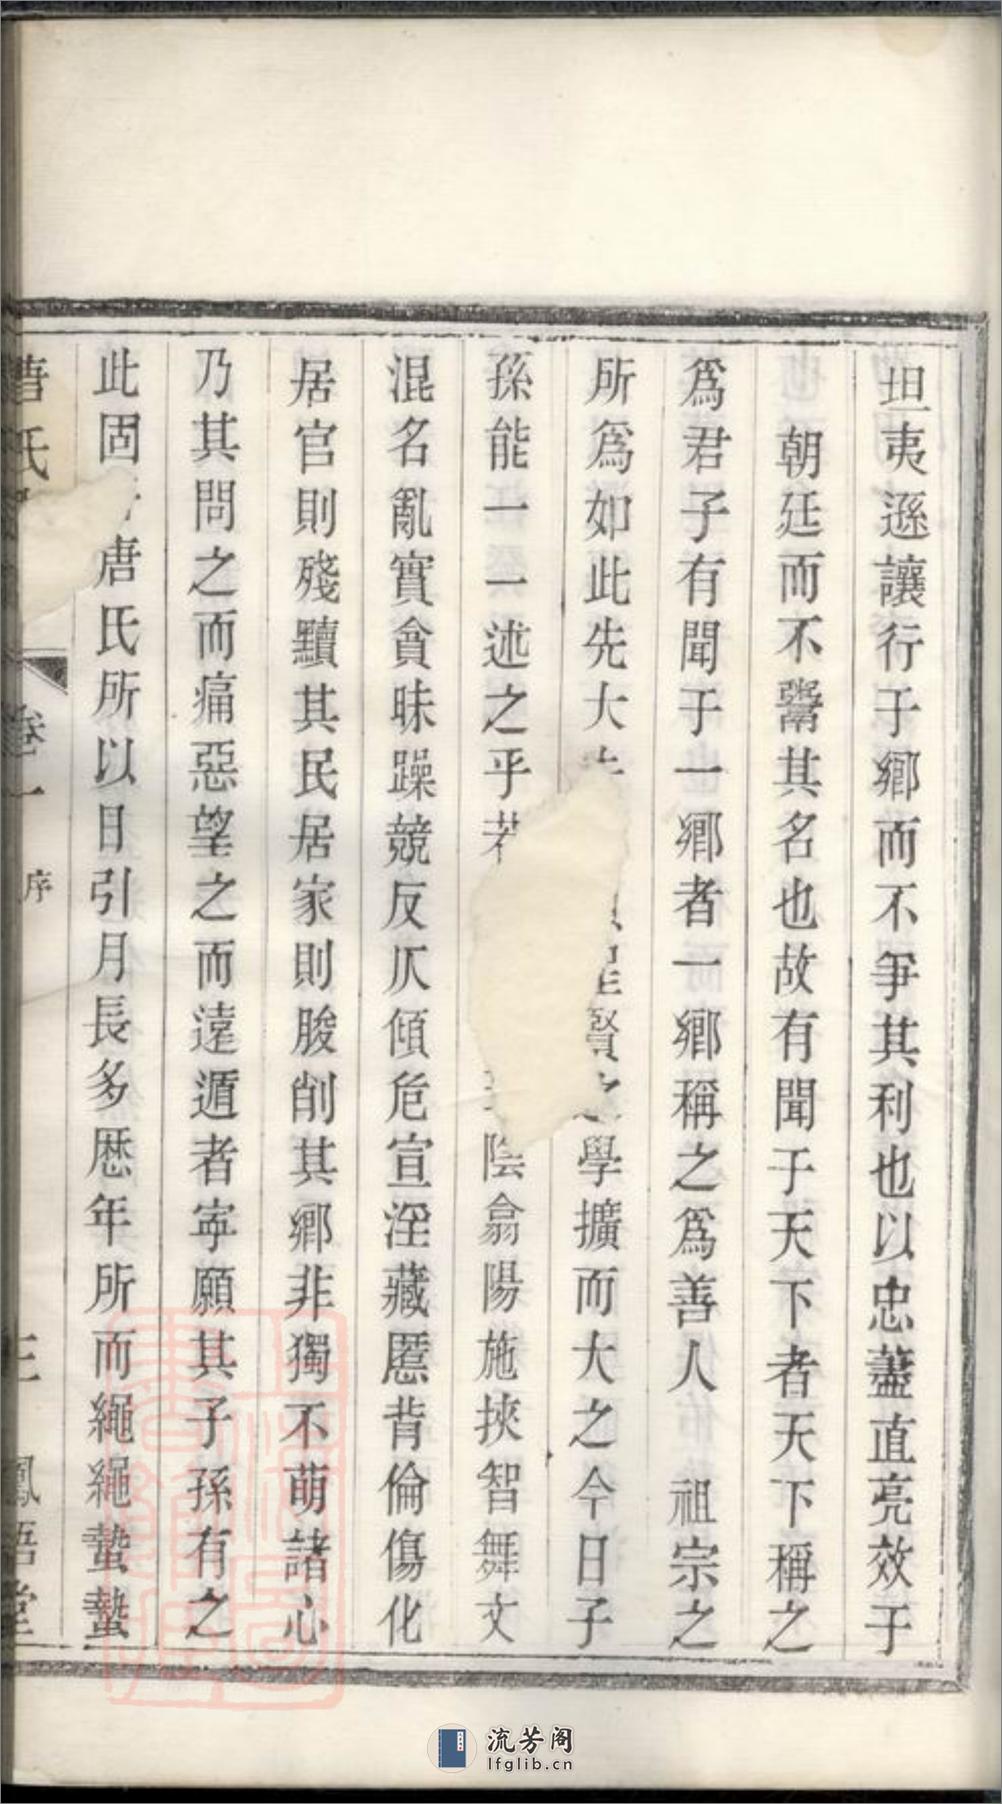 坦夷遜讓行于鄉而不爭其利也以忠藎直亮效于
朝廷而不鬻其名也故有聞于天下者天下稱之
爲君子有聞于一鄉者一鄉稱之爲善人 祖宗之
所爲如此先大聖賢之學擴而大之今日子
孫能一一述之乎若陰翕陽施挾智舞文
混名亂實貪昧躁競反仄傾危宣淫藏慝背倫傷化
居官則殘黷其民居家則朘削其鄉非獨不萌諸心
乃其問之而痛惡望之而遠遁者寧願其子孫有之
此固唐氏所以日引月長多歷年所而繩繩蟄蟄
唐氏 卷一 序 三 鳳梧堂
流芳阁
lfglib.cn